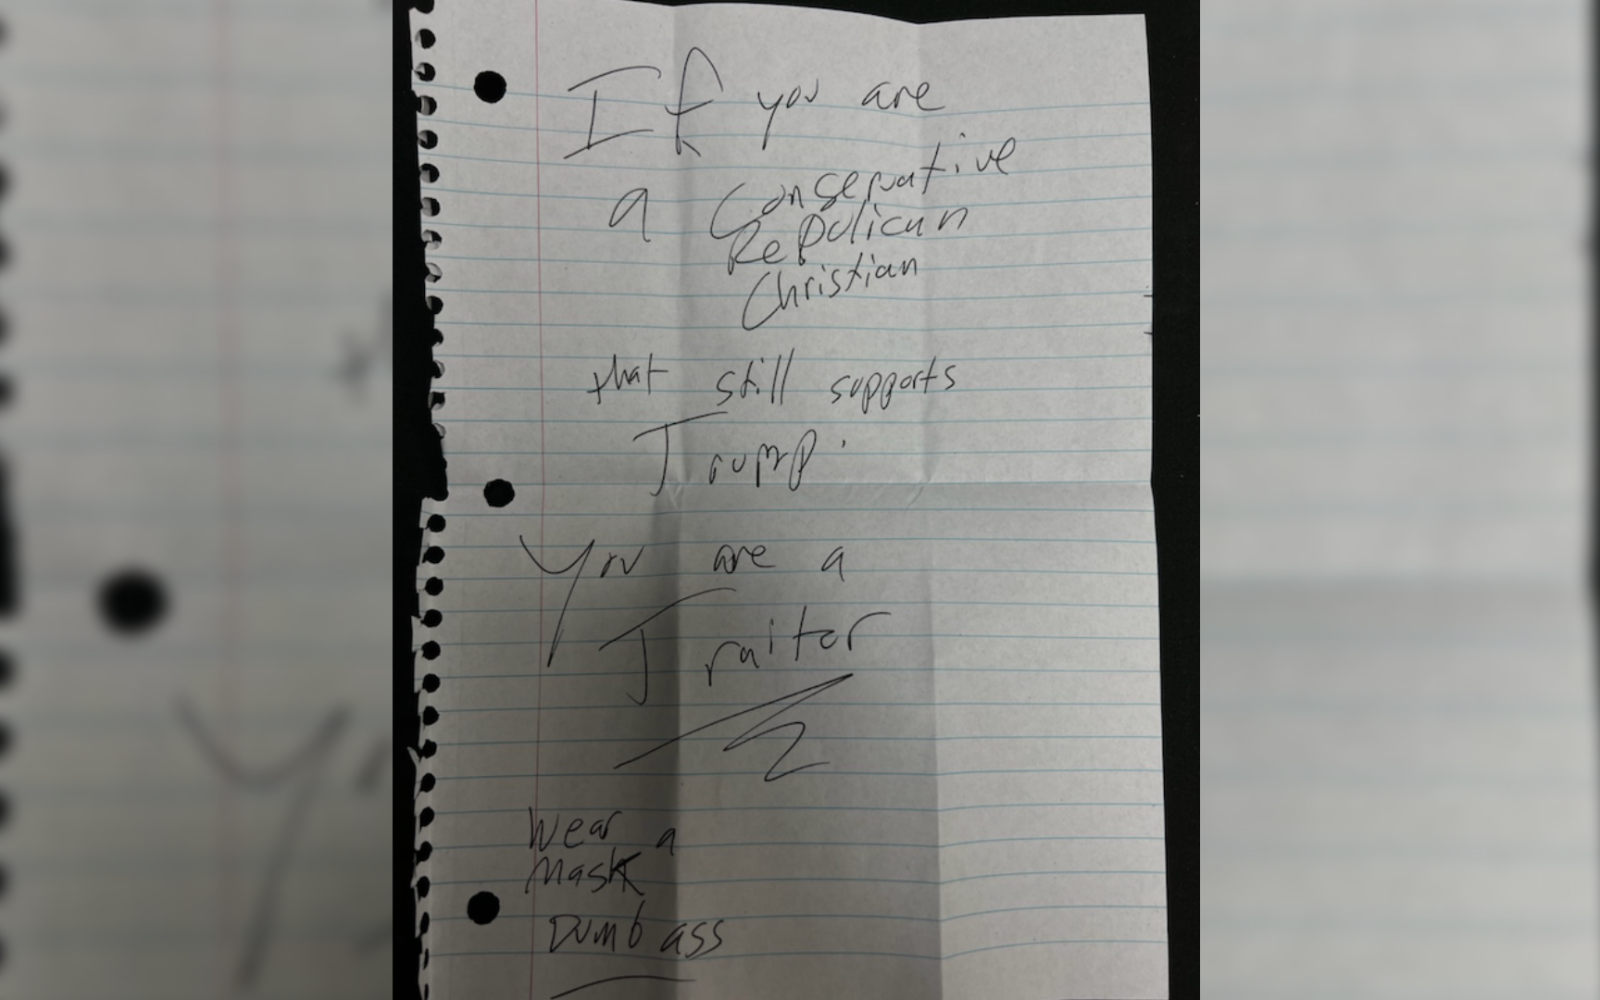 If you are
a Conservative
Repulican
Christian
that still supports
Trump.
You are a
Traitor
Wear a
Mask
Dumb ass